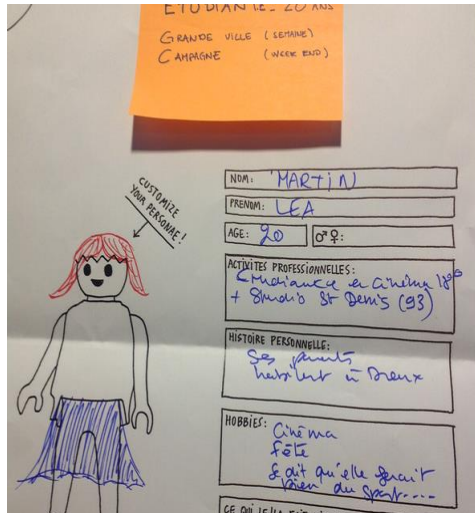 ETUDIANTE - 20 ANS
GRANDE VILLE (SEMAINE)
CAMPAGNE (WEEK END)
CUSTOMIZE
YOUR PERSONAE!
NOM: MARTIN
PRENOM: LEA
AGE: 20 ♂♀:
ACTIVITES PROFESSIONNELLES:
Etudiante en Cinéma
+ Studio St Denis (93)
HISTOIRE PERSONNELLE:
Ses parents
habitent à Dreux
HOBBIES: Cinéma
Fête
Se dit qu'elle ferait
bien du sport....